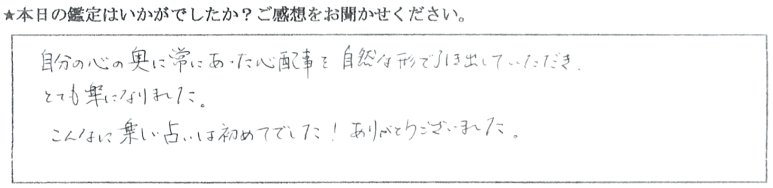 ★本日の鑑定はいかがでしたか？ご感想をお聞かせください。
自分の心の奥に常にあった心配事を自然な形で引き出していただき、
とても楽になりました。
こんなに楽しい占いは初めてでした！ありがとうございました。